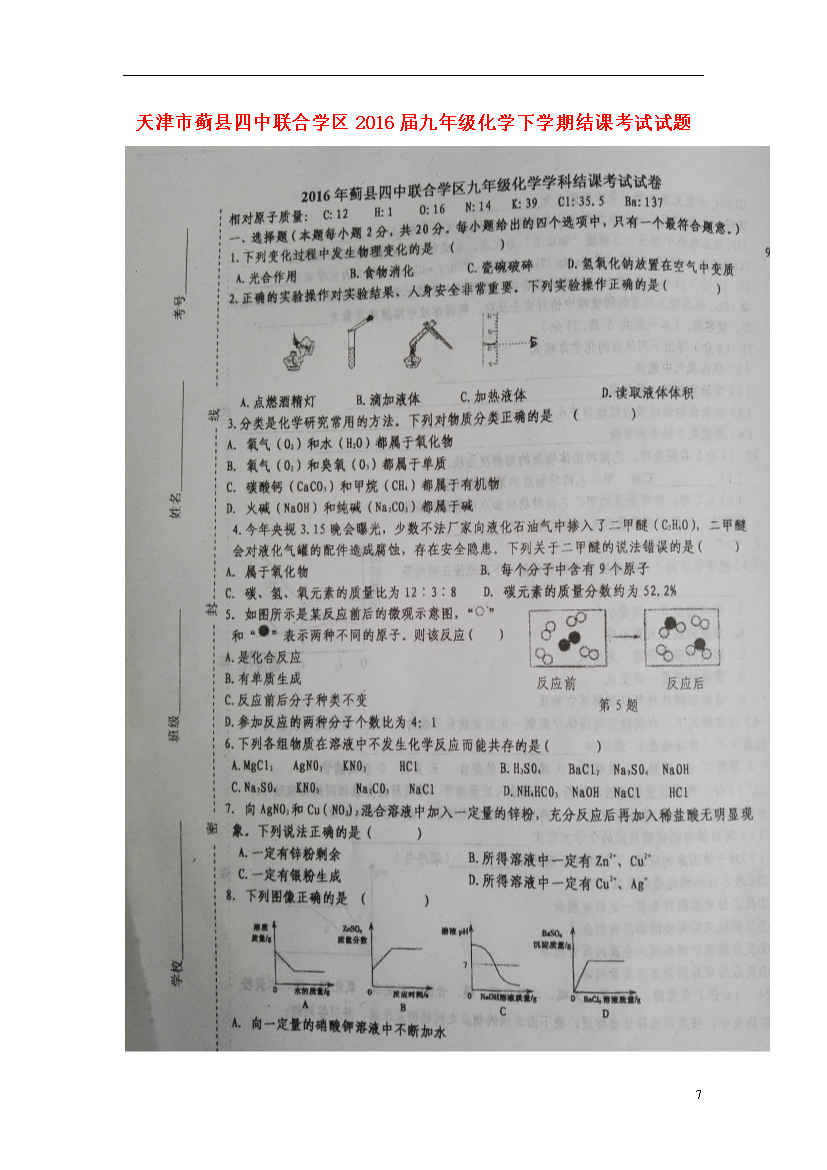 天津市蓟县四中联合学区2016届九年级化学下学期结课考试试题
2016年蓟县四中联合学区九年级化学学科结课考试试卷
相对原子质量: C:12 H:1 O:16 N:14 K:39 Cl:35.5 Ba:137
一、选择题(本题每小题2分,共20分。每小题给出的四个选项中,只有一个最符合题意。)
1.下列变化过程中发生物理变化的是 ( )
A.光合作用 B.食物消化 C.瓷碗破碎 D.氢氧化钠放置在空气中变质
2.正确的实验操作对实验结果、人身安全非常重要。下列实验操作正确的是( )
A.点燃酒精灯 B.滴加液体 C.加热液体 D.读取液体体积
3.分类是化学研究常用的方法。下列对物质分类正确的是 ( )
A. 氧气(O₂)和水(H₂O)都属于氧化物
B. 氧气(O₂)和臭氧(O₃)都属于单质
C. 碳酸钙(CaCO₃)和甲烷(CH₄)都属于有机物
D. 火碱(NaOH)和纯碱(Na₂CO₃)都属于碱
4.今年央视3.15晚会曝光,少数不法厂家向液化石油气中掺入了二甲醚(C₂H₆O),二甲醚
会对液化气罐的配件造成腐蚀,存在安全隐患。下列关于二甲醚的说法错误的是( )
A. 属于氧化物 B. 每个分子中含有9个原子
C. 碳、氢、氧元素的质量比为12∶3∶8 D. 碳元素的质量分数约为52.2%
5. 如图所示是某反应前后的微观示意图,“○”
和“●”表示两种不同的原子。则该反应( )
A.是化合反应
B.有单质生成
C.反应前后分子种类不变
D.参加反应的两种分子个数比为4:1
反应前 反应后
第5题
6.下列各组物质在溶液中不发生化学反应而能共存的是( )
A.MgCl₂ AgNO₃ KNO₃ HCl B.H₂SO₄ BaCl₂ Na₂SO₄ NaOH
C.Na₂SO₄ KNO₃ Na₂CO₃ NaCl D.NH₄HCO₃ NaOH NaCl HCl
7. 向AgNO₃和Cu(NO₃)₂混合溶液中加入一定量的锌粉,充分反应后再加入稀盐酸无明显现
象。下列说法正确的是( )
A.一定有锌粉剩余 B.所得溶液中一定有Zn²⁺、Cu²⁺
C.一定有银粉生成 D.所得溶液中一定有Cu²⁺、Ag⁺
8. 下列图像正确的是 ( )
溶质质量/g 0 水的质量/g A
ZnSO₄质量分数 0 反应时间/s B
溶液pH 7 0 NaOH溶液质量/g C
BaSO₄沉淀质量/g 0 BaCl₂溶液质量/g D
A. 向一定量的硝酸钾溶液中不断加水
考号
姓名
班级
学校
线
封
密
9
7